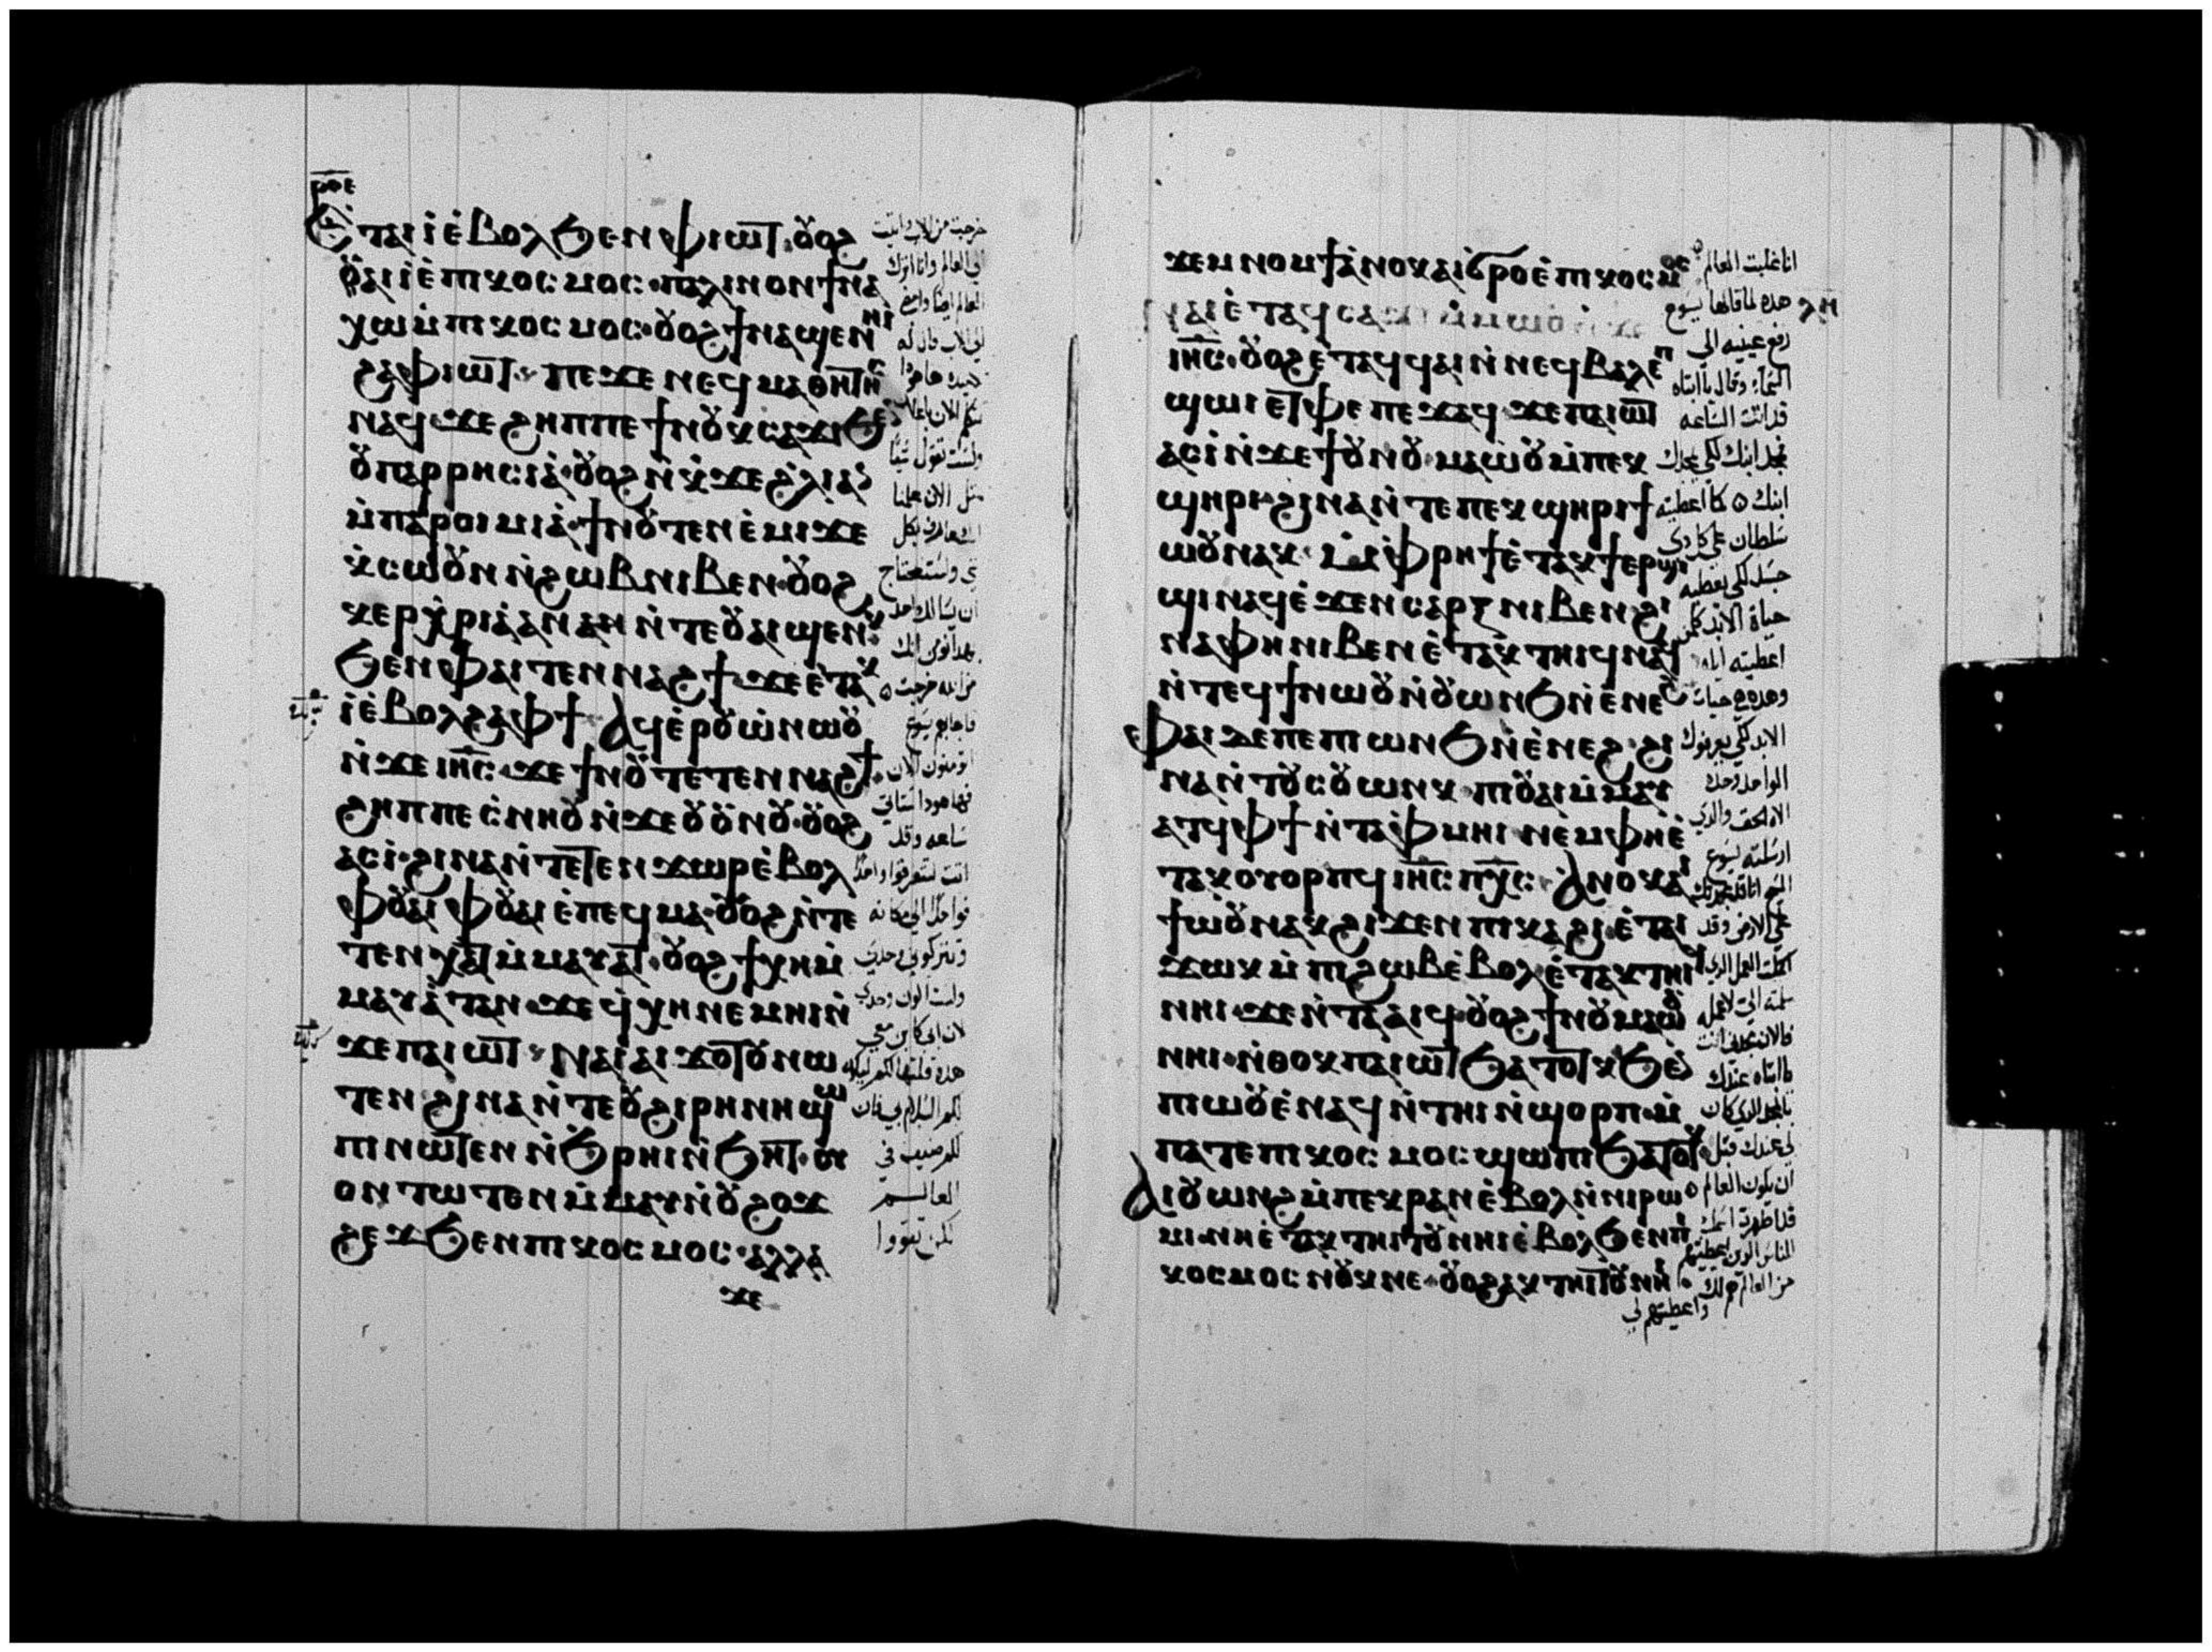 ⲣⲟⲉ
Ⲉ̇ⲧⲁⲓⲓ̀ⲉ̀ⲃⲟⲗϧⲉⲛⲫⲓⲱⲧ·ⲟⲩⲟϩ
ⲟⲩⲁⲓⲓ̀ⲉ̀ⲡⲓⲕⲟⲥⲙⲟⲥ·ⲡⲁⲗⲓⲛⲟⲛϯⲛⲁ
ⲭⲱⲙ̀ⲡⲓⲕⲟⲥⲙⲟⲥ·ⲟⲩⲟϩϯⲛⲁϣⲉⲛⲏⲓ
ϩⲁⲫⲓⲱⲧ·ⲡⲉϫⲉⲛⲉϥⲙⲁⲑⲏⲧⲏⲥ
ⲛⲁϥϫⲉϩⲏⲡⲡⲉϯⲛⲟⲩⲕⲥⲁϫⲓϧⲉⲛ
ⲟⲩⲡⲁⲣⲣⲏⲥⲓⲁ̀·ⲟⲩⲟϩⲛ̀ⲕ̀ϫⲉϩ̀ⲗⲓⲁⲛ
ⲙ̀ⲡⲁⲣⲟⲓⲙⲓⲁ̀·ϯⲛⲟⲩⲧⲉⲛⲉ̀ⲙⲓϫⲉ
ⲕ̀ⲥⲱⲟⲩⲛⲛ̀ϩⲱⲃⲛⲓⲃⲉⲛ·ⲟⲩⲟϩ
ⲕⲉⲣⲭ̀ⲣⲓⲁ̀ⲁⲛⲁⲛⲛ̀ⲧⲉⲟⲩⲁⲓϣⲉⲛⲕ
ϧⲉⲛⲫⲁⲓⲧⲉⲛⲛⲁϩϯϫⲉⲉ̀ⲧⲁⲕ
ⲓ̀ⲉ̀ⲃⲟⲗϩⲁⲫϯ Ⲁϥⲉ̀ⲣⲟⲩⲱ̀ⲛⲱⲟⲩ
ⲛ̀ϫⲉⲓⲏⲥ·ϫⲉϯⲛⲟⲩⲧⲉⲧⲉⲛⲛⲁϩϯ
ϩⲏⲡⲡⲉⲥ̀ⲛⲏⲟⲩⲛ̀ϫⲉⲟⲩⲟⲩⲛⲟⲩ·ⲟⲩⲟϩ
ⲁⲥⲓ̀·ϩⲓⲛⲁⲛ̀ⲧⲉⲧⲉⲛϫⲱⲣⲉ̀ⲃⲟⲗ
ⲫⲟⲩⲁⲓⲫⲟⲩⲁⲓⲉ̀ⲡⲉϥⲙⲁ·ⲟⲩⲟϩⲛ̀ⲧⲉ
ⲧⲉⲛⲭⲁⲧⲙ̀ⲙⲁⲩⲁⲧ·ⲟⲩⲟϩϯⲭⲏⲙ̀
ⲙⲁⲩⲁ̀ⲧⲁⲛ·ϫⲉϥ̀ⲭⲏⲛⲉⲙⲏⲓⲛ̀
ϫⲉⲡⲁⲓⲱⲧ Ⲛⲁⲓ̀ⲁⲓϫⲟⲧⲟⲩⲛⲱ
ⲧⲉⲛϩⲓⲛⲁⲛ̀ⲧⲉⲟⲩϩⲓⲣⲏⲛⲏϣⲱ
ⲡⲓⲛⲱⲧⲉⲛⲛ̀ϧⲣⲏⲓⲛ̀ϧⲏⲧ·ⲟⲩ
ⲟⲛⲧⲱⲧⲉⲛⲙ̀ⲙⲁⲩⲛ̀ⲟⲩϩⲟϫ
ϩⲉϫϧⲉⲛⲡⲓⲕⲟⲥⲙⲟⲥ·ⲁⲗⲗⲁ
ϫⲉ
خرجت من الاب واتيت
الي العالم وانا اترك
العالم ايضا وامضي
الي الاب قال له
تلاميذه هاهوذا
تتكلم الان علانية
ولست تقول شيا
مثل الان علمنا
انك عارف بكل
شي ولست تحتاج
ان يسالك واحد
بهذا نومن انك
من الله خرجت
فاجابهم يسوع
اتومنون الان
فها هوذا ستاتي
ساعه وقد
اتت لتتفرقوا واحدا
فواحدا الي مكانه
وتتركوني وحدي
ولست اكون وحدي
لان ابي كاين معي
هذه قلتها لكم ليكون
لكم السلام بي فان
لكم ضيق في
العالم
لكن تقووا
ϫⲉⲙⲛⲟⲙϯⲁ̀ⲛⲟⲕⲁⲓϭⲣⲟⲉ̀ⲡⲓⲕⲟⲥⲙⲟⲥ
ⲛⲁⲓⲉ̀ⲧⲁϥⲥⲁ
ⲓⲏⲥ·ⲟⲩⲟϩⲉ̀ⲧⲁϥϥⲁⲓⲛ̀ⲛⲉϥⲃⲁⲗⲉ̀ⲡ
ϣⲱⲓⲉ̀ⲧⲫⲉⲡⲉϫⲁϥϫⲉⲡⲁⲓⲱⲧ
ⲁⲥⲓ̀ⲛ̀ϫⲉϯⲟⲩⲛⲟⲩ·ⲙⲁⲱ̀ⲟⲩⲙ̀ⲡⲉⲕ
ϣⲏⲣⲓ·ϩⲓⲛⲁⲛ̀ⲧⲉⲡⲉⲕϣⲏⲣⲓϯ
ⲱⲟⲩⲛⲁⲕ·ⲙ̀ⲫⲣⲏϯⲉ̀ⲧⲁⲕϯⲉⲣϣⲓ
ϣⲓⲛⲁϥⲉ̀ϫⲉⲛⲥⲁⲣⲝⲛⲓⲃⲉⲛϩⲓ
ⲛⲁⲫⲏⲛⲓⲃⲉⲛⲉ̀ⲧⲁⲕⲧⲏⲓϥⲛⲁϥ
ⲛ̀ⲧⲉϥϯⲛⲱⲟⲩⲛ̀ⲟⲩⲱⲛϧⲛ̀ⲉ̀ⲛⲉϩ
Ⲫⲁⲓⲇⲉⲡⲉⲡⲓⲱⲛϧⲛ̀ⲉ̀ⲛⲉϩ·ϩⲓ
ⲛⲁⲛ̀ⲧⲟⲩⲥⲟⲩⲱⲛⲕ·ⲡⲓⲟⲩⲁⲓⲙ̀ⲙⲁⲩ
ⲁⲧϥⲫϯⲛ̀ⲧⲁⲫⲙⲏⲓⲛⲉⲙⲫⲏⲉ̀
ⲧⲁⲕⲟⲩⲟⲣⲡϥⲓⲏⲥⲡⲭⲥ·Ⲁⲛⲟⲕⲁⲓ
ϯⲱ̀ⲟⲩⲛⲁⲕϩⲓϫⲉⲛⲡⲓⲕⲁϩⲓ·ⲉ̀ⲧⲁⲓ
ϫⲱⲕⲙ̀ⲡⲓϩⲱⲃⲉ̀ⲃⲟⲗ·ⲉ̀ⲧⲁⲕⲧⲏⲓϥ
ⲛⲏⲓ·ϫⲉⲛ̀ⲧⲁⲁⲓϥ·ⲟⲩⲟϩϯⲛⲟⲩⲙⲁⲱⲟⲩ
ⲛⲏⲓ·ⲛ̀ⲑⲟⲕⲡⲁⲓⲱⲧϧⲁⲧⲟⲧⲕϧⲉⲛ
ⲡⲓⲱⲟⲩⲉ̀ⲛⲁϥⲛ̀ⲧⲏⲓⲛ̀ϣⲟⲣⲡ·ⲙ̀
ⲡⲁⲧⲉⲡⲓⲕⲟⲥⲙⲟⲥϣⲱⲡⲓϧⲁⲧⲟⲧⲕ
Ⲁⲓⲟⲩⲱⲛϩⲙ̀ⲡⲉⲕⲣⲁⲛⲉ̀ⲃⲟⲗⲛ̀ⲛⲓⲣⲱ
ⲙⲓ·ⲛⲏⲉ̀ⲧⲁⲕⲧⲏⲓⲧⲟⲩⲛⲏⲓⲉ̀ⲃⲟⲗϧⲉⲛⲡⲓ
ⲕⲟⲥⲙⲟⲥⲛⲟⲩⲕⲛⲉ·ⲟⲩⲟϩⲁⲕⲧⲏⲓⲧⲟⲩⲛⲏⲓ
انا غلبت العالم
هذه لما قالها يسوع
ⲗⲏ
رفع عينيه الي
السماء وقال يا ابتاه
قد اتت الساعه
مجد ابنك لكي يمجدك
ابنك كما اعطيته
سلطان علي كل ذي
جسد لكي يعطيه
حياة الابد كلمن
اعطيته اياه
وهذه هي حيات
الابد لكي يعرفوك
الواحد وحدك
الاه الحق والذي
ارسلته يسوع
المسيح انا قد مجدتك
علي الارض وقد
اكملت العمل الذي
سلمته الي لاعمله
فالان مجدني انت
يا ابتاه عندك
بالمجد الذي كان
لي عندك قبل
ان يكون العالم
قد اظهرت اسمك
للناس الذين اعطيتهم
من العالم هم لك
واعطيتهم لي